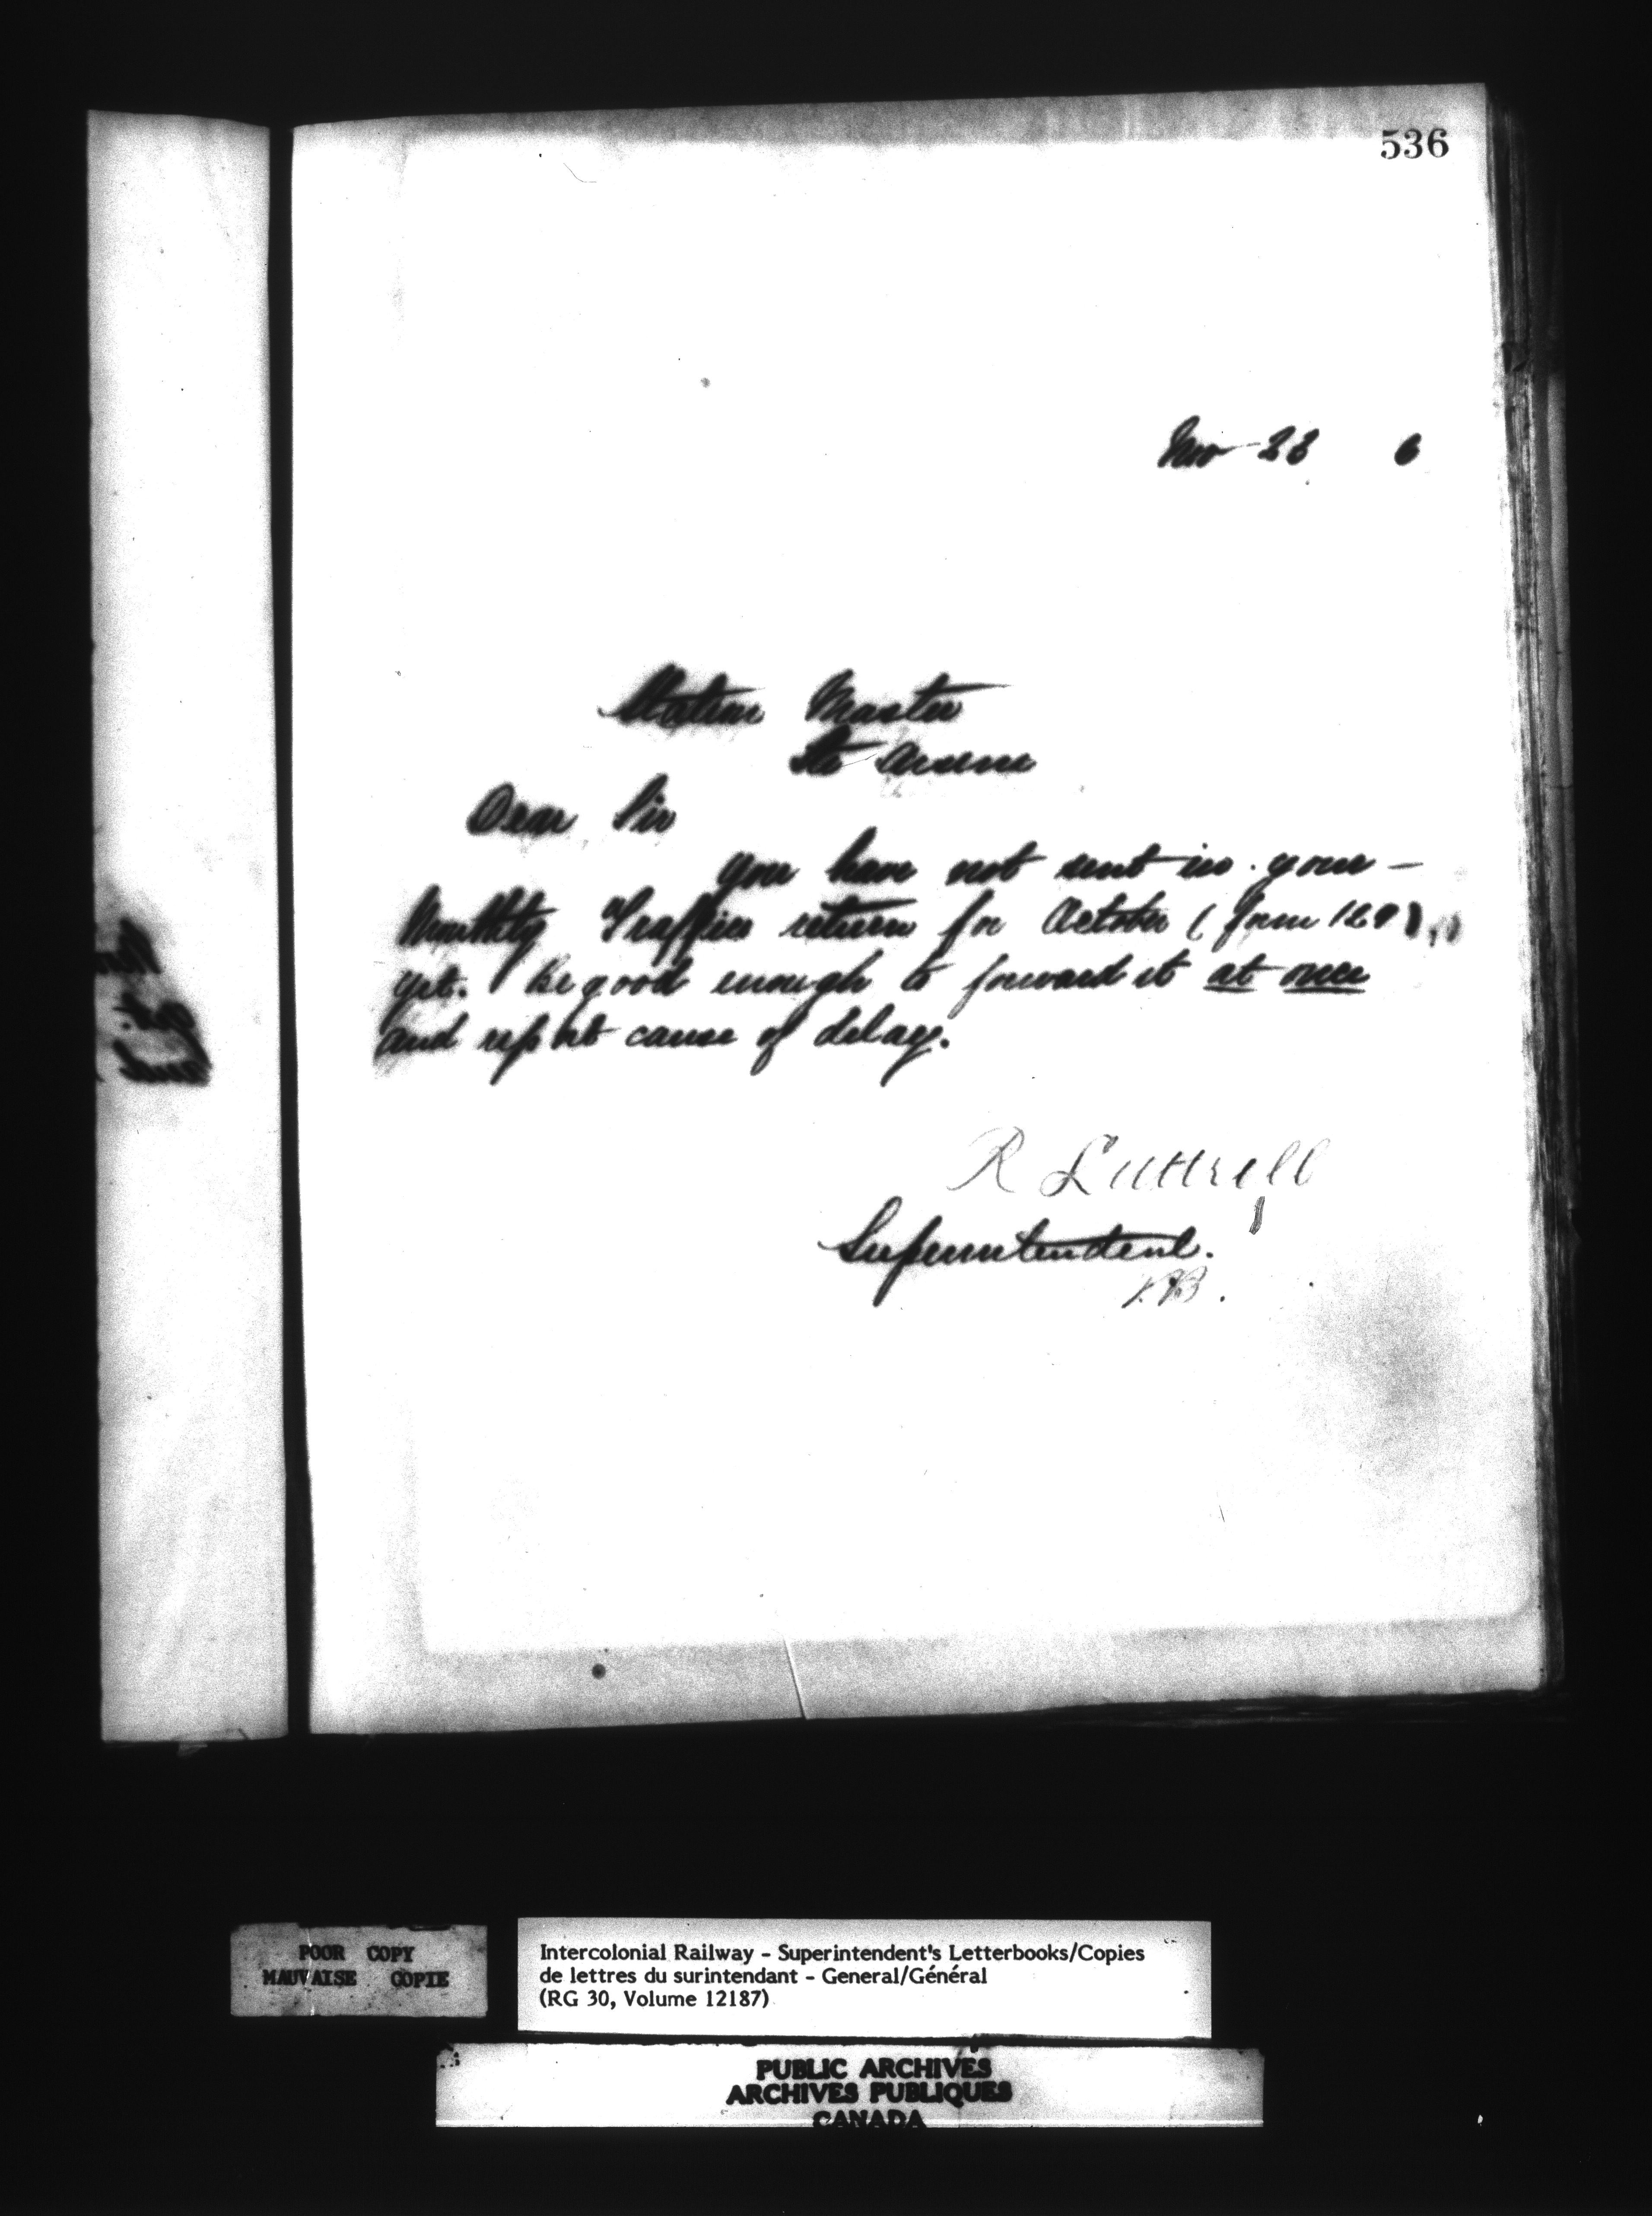 536
Nov 23 6
Station Master
St Arsene
Dear Sir
You have not sent in your
Monthly Traffic return for October (form 129)
yet. Be good enough to forward it at once
and report cause of delay.
R Luttrell
Superintendent.
POOR COPY
MAUVAISE COPIE
Intercolonial Railway - Superintendent's Letterbooks/Copies
de lettres du surintendant - General/Général
(RG 30, Volume 12187)
PUBLIC ARCHIVES
ARCHIVES PUBLIQUES
CANADA